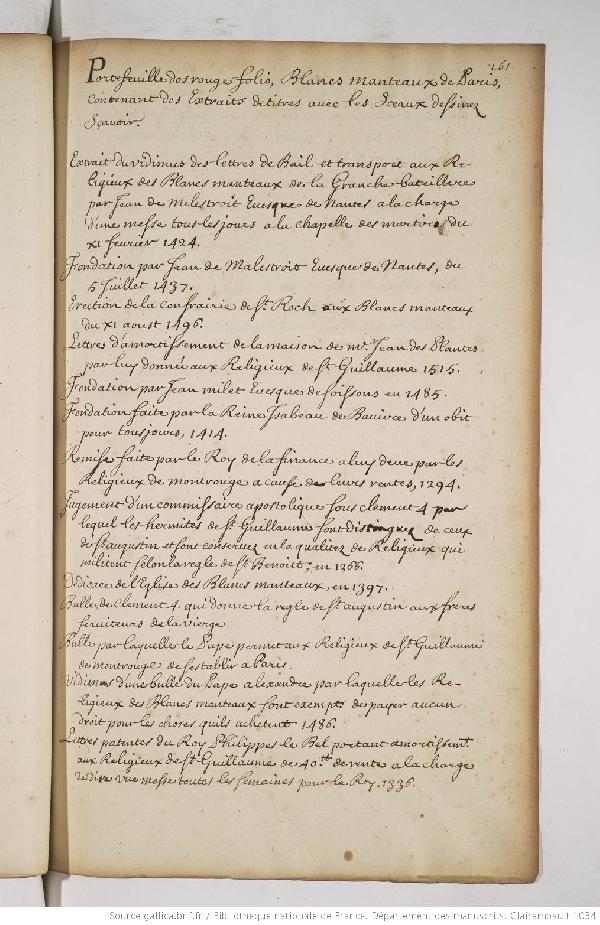 161.
Portefeuille dos rouge folio, Blancs manteaux de Paris,
contenant des Extraits de titres avec les Sceaux dessinez
Scavoir.
Extrait du vidimus des lettres de Bail et transport aux Re-
ligieux des Blancs manteaux de la Granche bateillere
par Jean de Malestroit Evesque de Nantes a la charge
d'une messe tous les jours a la chapelle des martirs, du
xi fevrier 1424.
Fondation par Jean de Malestroit Evesque de Nantes, du
5 Juillet 1437.
Erection de la confrairie de St. Roch aux Blancs manteaux
du xi aoust 1496.
Lettres d'amortissement de la maison de mr. Jean des Plantes
par luy donnée aux Religieux de St Guillaume 1515.
Fondation par Jean milet Evesque de soissons en 1485.
Fondation faite par la Reine Isabeau de Baviere d'un obit
pour tousjours, 1414.
Remise faite par le Roy de la finance a luy deue par les
Religieux de montrouge a cause de leurs rentes, 1294.
Jugement d'un commissaire apostolique sous clement 4 par
lequel les hermites de St Guillaume sont distinguez de ceux
de St augustin et sont conservez en la qualitez de Religieux qui
militent selon la regle de St Benoist, en 1266.
Dedicace de l'Eglise des Blancs manteaux, en 1397.
Bulle, de Clement 4. qui donne la regle de St augustin aux freres
serviteurs de la vierge
Bulle par laquelle le Pape permet aux Religieux de St Guillaume
de montrouge de s'establir a Paris.
Vidimus d'une bulle du Pape alexandre par laquelle les Re-
ligieux des Blancs manteaux sont exempts de payer aucun
droit pour les choses quils achetent 1486.
Lettres patentes du Roy Philippes le Bel portant amortissemt.
aux Religieux de St Guillaume de 40tt de rente a la charge
de dire une messe toutes les semaines pour le Roy. 1336.
Source gallica.bnf.fr / Bibliothèque nationale de France. Département des manuscrits. Clairambault 1034